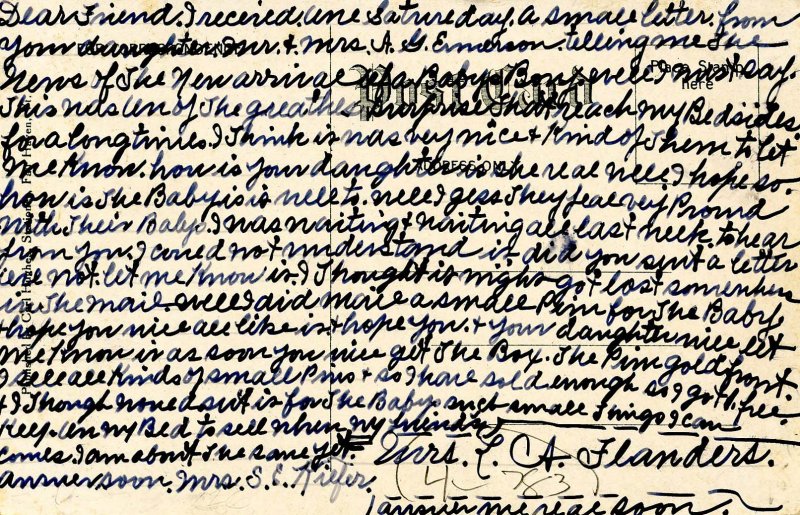 Dear Friend. I received. une Satureday. a small letter. from
your daughter. Mr. & Mrs. A. G. Emerson. telling me The
News of The New arrival of a Babys Boy, well, I must say.
This was un of The greathes surprise That reach my Bedsides.
for a long times. I Think is was very nice & Kind of Them to let
me Know. how is your daughter is she real well, I hope so.
how is The Baby is is well to. well I gess They feal very Proud
with Their Babys. I was waiting & waiting all last week. to hear
from you. I coued not understand is. did you sent a letter
not let me Know is. I Thought is might got lost somewhere
in The mail. well I did mail a small Pin for The Baby
& hope you will all like is & hope you. & your daughter will let
me Know is as soon you will get The Box. The Pin gold front.
I sell all Kinds of small Pins & so I have sold enough so I got 1 free.
& I Though is for The Babys such small Things I can
Keep. un my Bed to sell when my friends
comes. I am about The same yet
Mrs. L. A. Flanders.
answer soon. Mrs. S. E. Kiefer.
answer me real soon.
Post Card
FOR CORRESPONDENCE
ADDRESS ONLY
Place Stamp
here
4-783